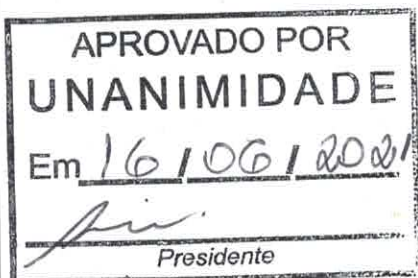 APROVADO POR
UNANIMIDADE
Em 16 / 06 / 2021
Presidente